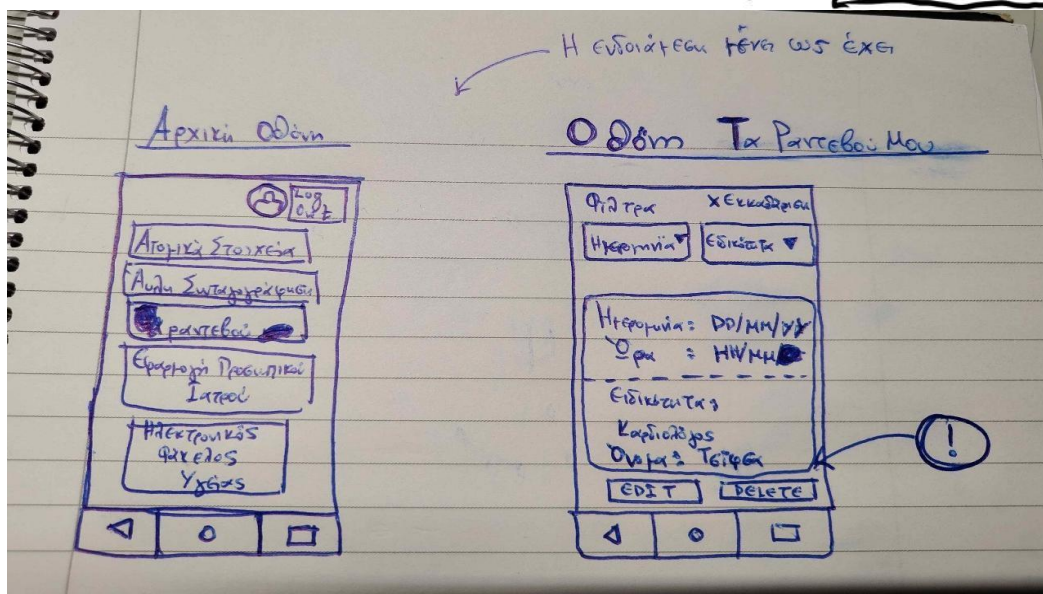 Η ενδοιάμεση μένει ως έχει
Αρχική Οθόνη
Log
Out
Ατομικά Στοιχεία
Άυλη Συνταγογράφηση
ραντεβού
Εφαρμογή Προσωπικού
Ιατρού
Ηλεκτρονικός
Φάκελος
Υγείας
Οθόνη Τα Ραντεβού Μου
Φίλτρα X Εκκαθάριση
Ημερομηνία Ειδικότητα
Ημερομηνία: DD/MM/YY
Ώρα : HH/MM
Ειδικότητα:
Καρδιολόγος
Όνομα: Τσίφσα
!
EDIT DELETE